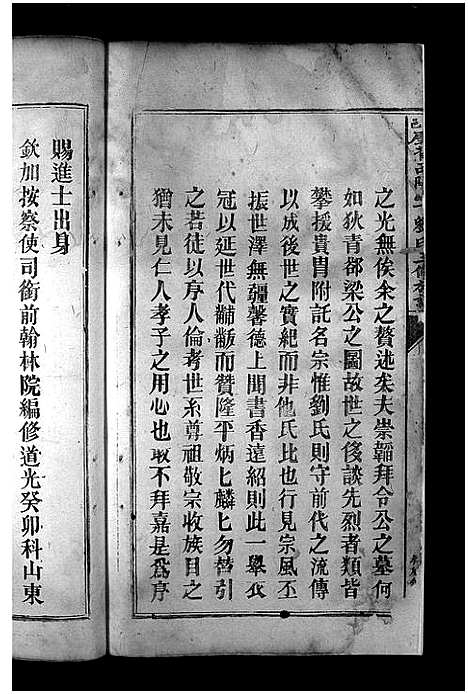 之光無俟余之贅述矣夫崇韜拜令公之墓何
如狄青却梁公之圖故世之侈談先烈者類皆
攀援貴胄附託名宗惟劉氏則守前代之流傳
以成後世之實紀而非他氏比也行見宗風丕
振世澤無疆馨德上聞書香遠紹則此一舉衣
冠以延世代黼黻而贊隆平炳匕麟匕勿替引
之若徒以序人倫考世系尊祖敬宗收族目之
猶未見仁人孝子之用心也敢不拜嘉是為序
賜進士出身
欽加按察使司銜前翰林院編修道光癸卯科山東